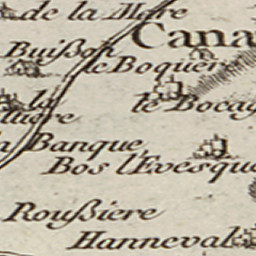 de la Mare
Cana
Buißon
le Boquer
la
le Bocag
Banque
Bos l'Evesque
Roußiere
Hanneval